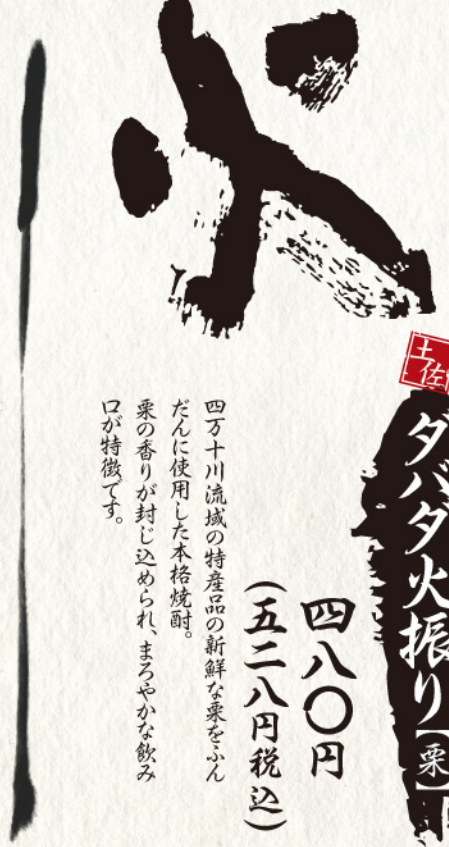 火
土佐
ダバダ火振り【栗】
四八〇円
(五二八円税込)
四万十川流域の特産品の新鮮な栗をふん
だんに使用した本格焼酎。
栗の香りが封じ込められ、まろやかな飲み
口が特徴です。